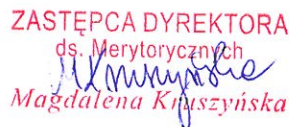 ZASTĘPCA DYREKTORA
ds. Merytorycznych
MKruszyńska
Magdalena Kruszyńska